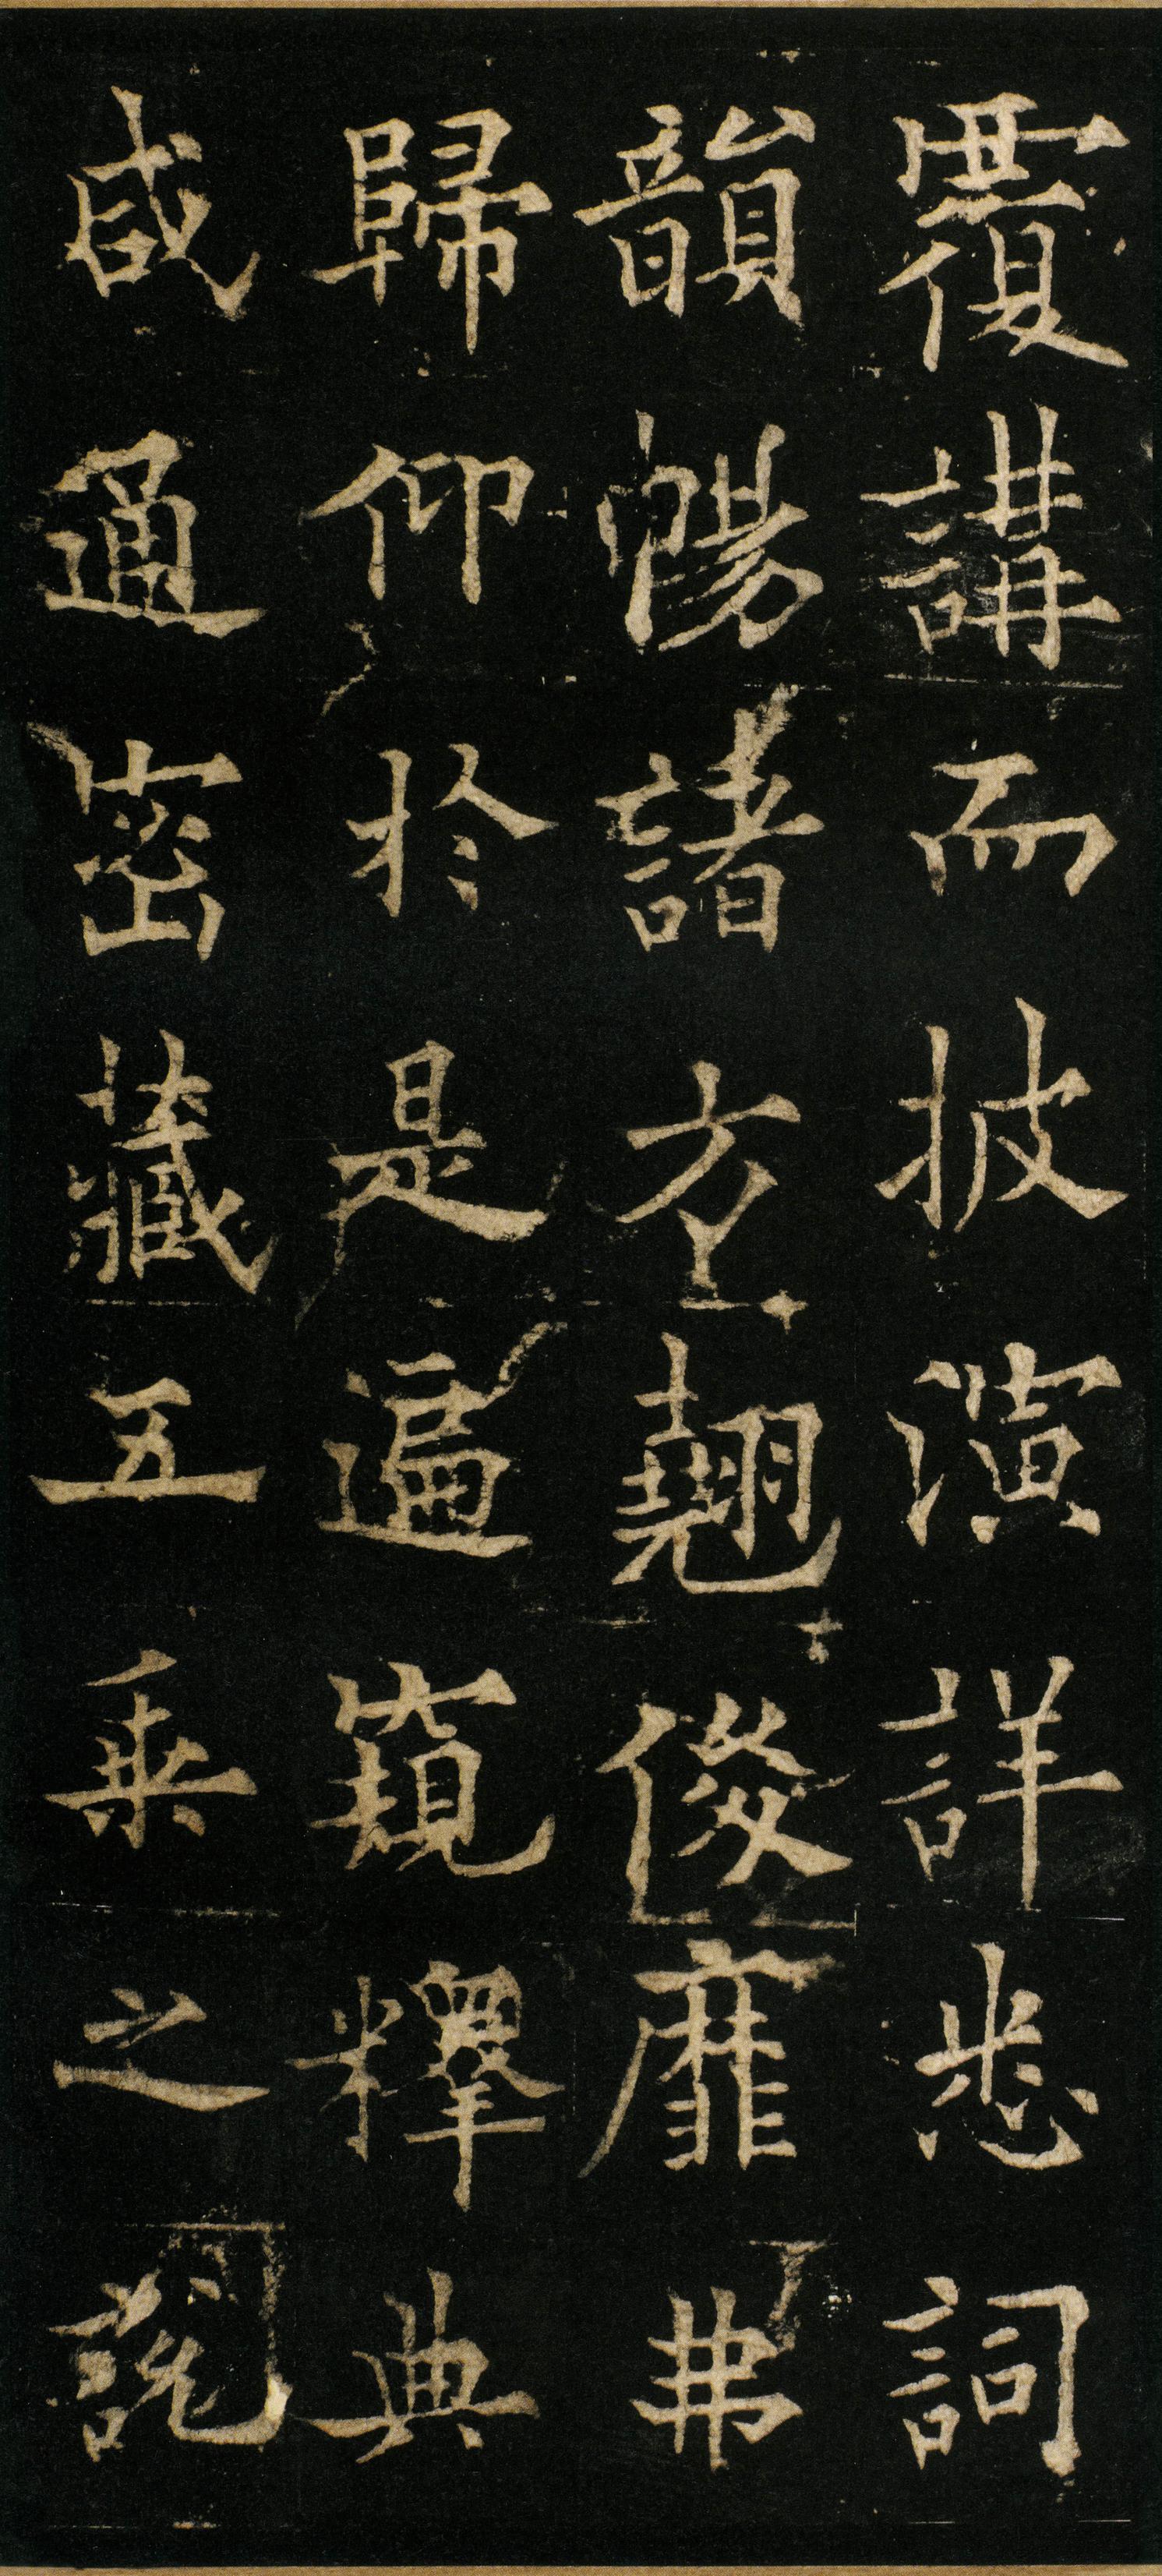 覆講而披演詳悉詞
韻暢諸方翹俊靡弗
歸仰於是遍窺釋典
咸通密藏五乘之說